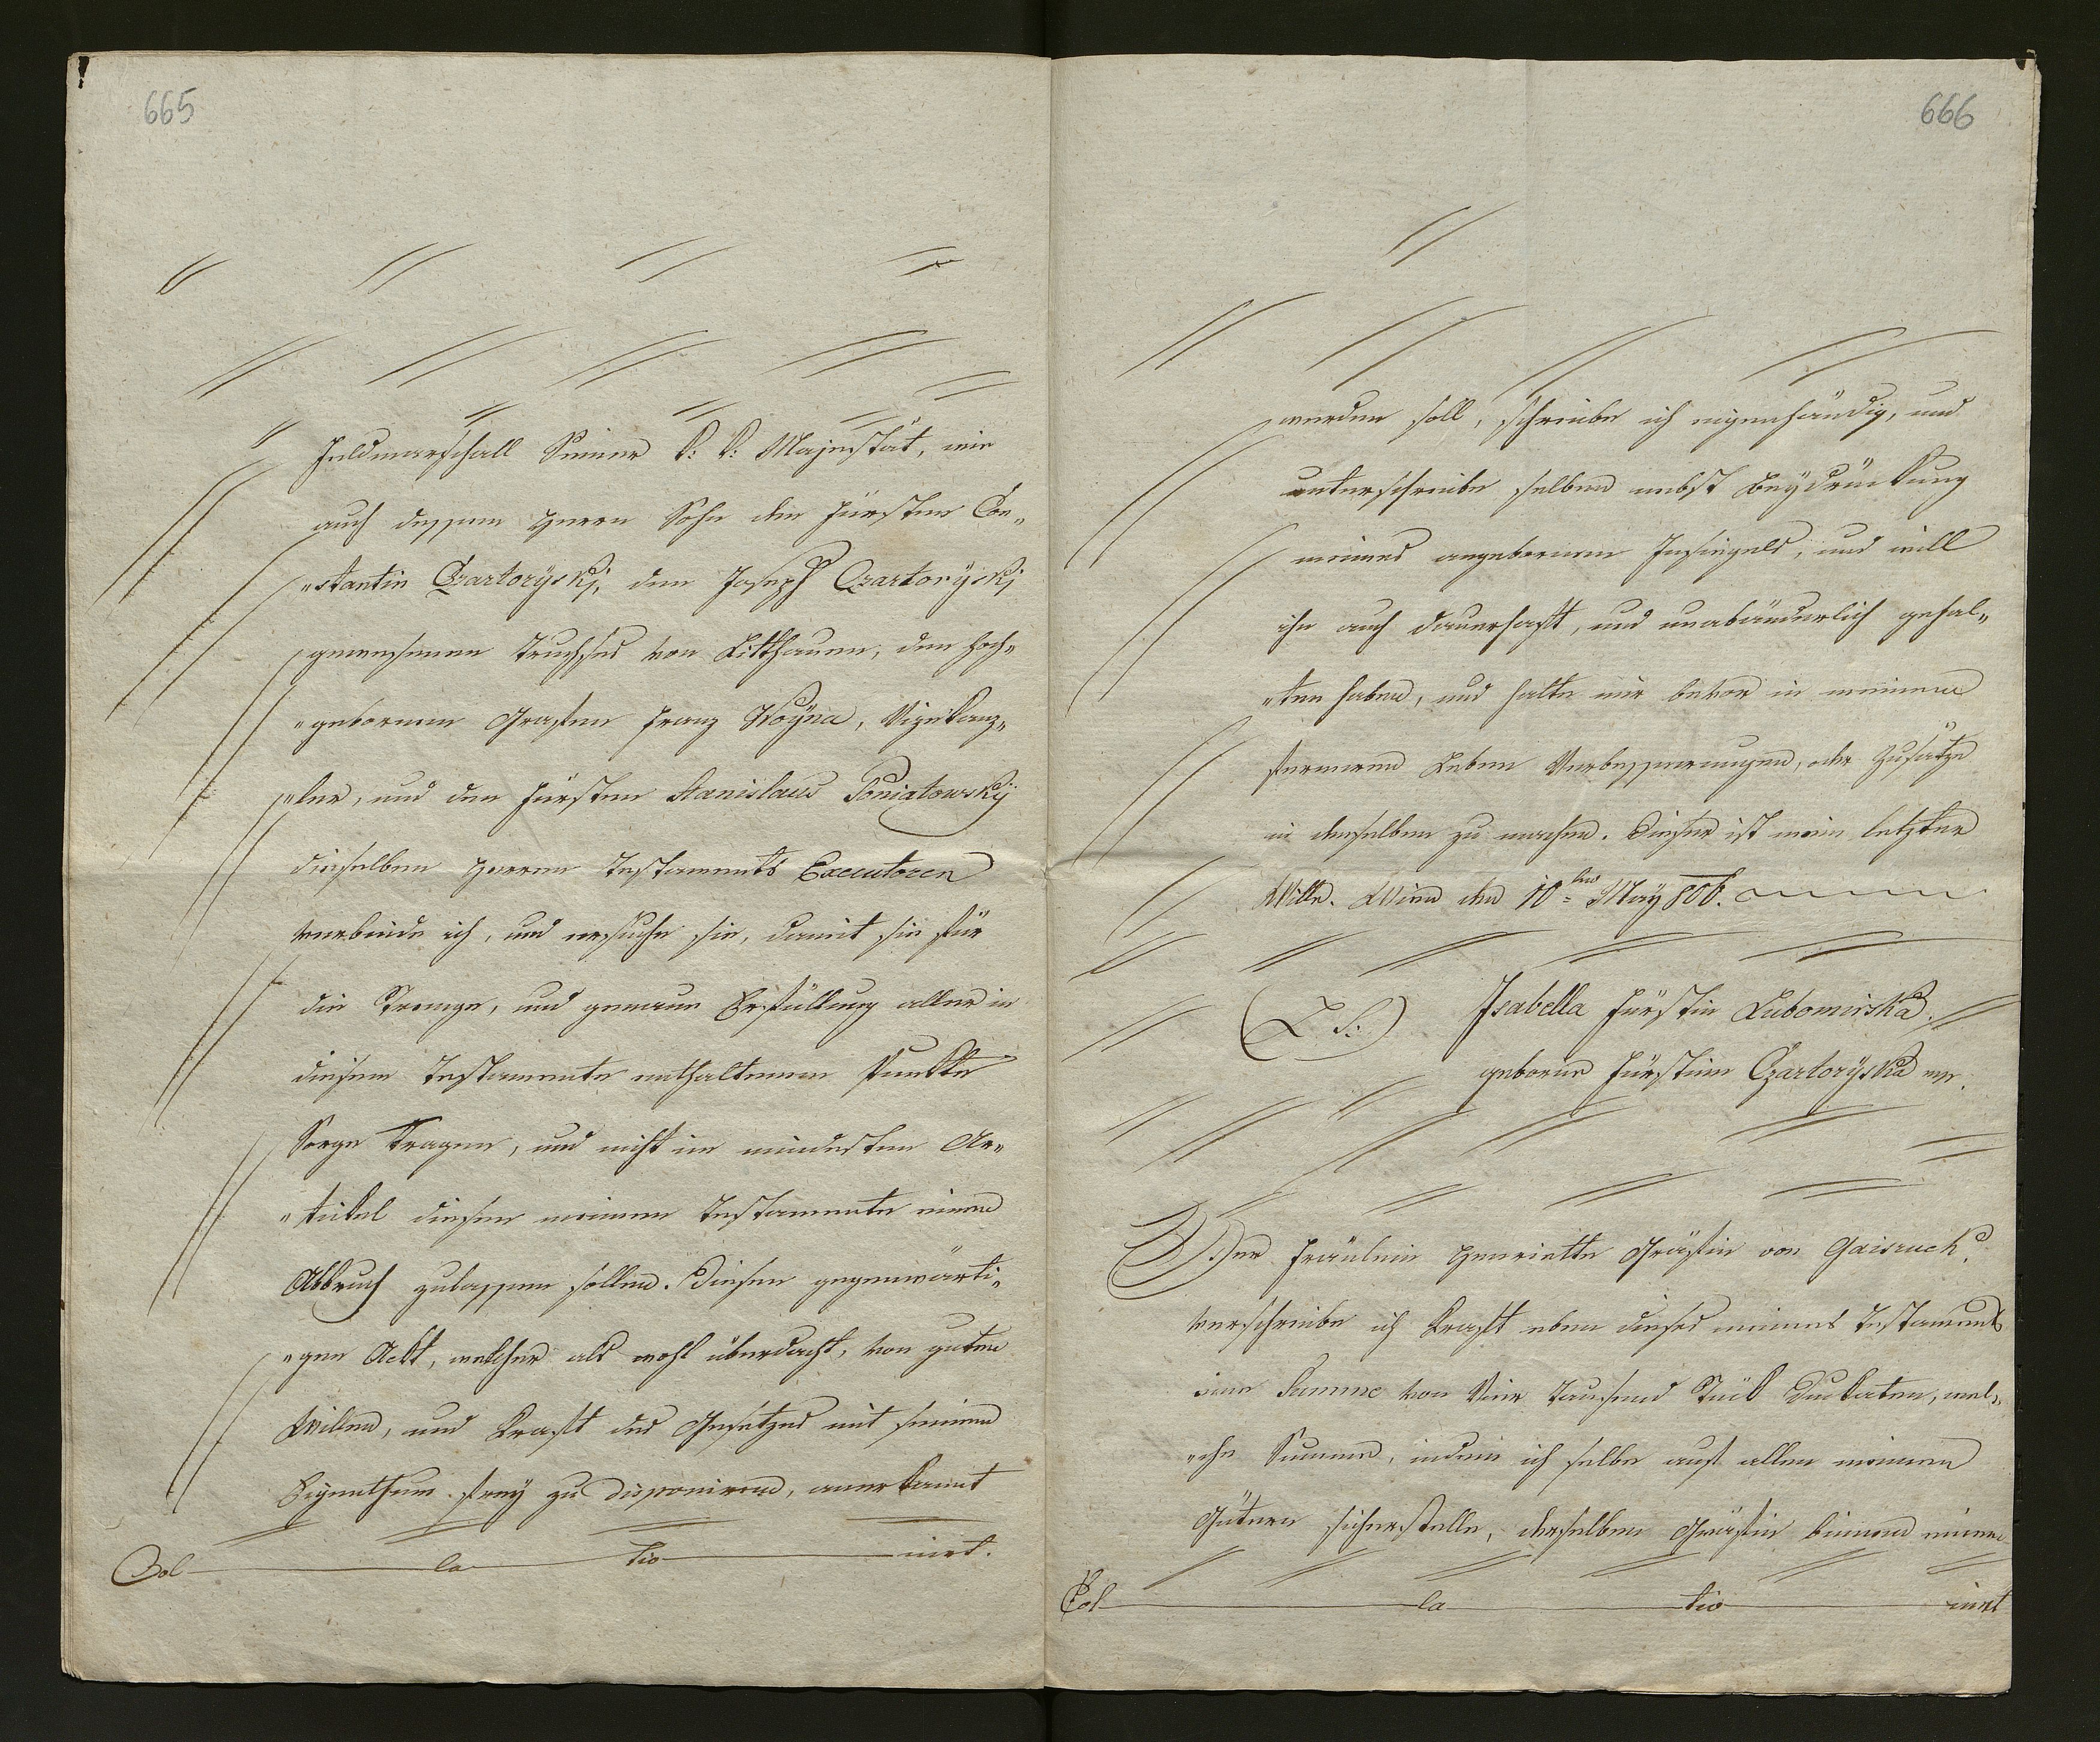 665
Feldmarschall Seiner K: K: Majestät, wie
auch dessen Herrn Sohn den Fürsten Con„
„stantin Czartoryskj, den Joseph Czartoryskj
gewesenen Truchses von Litthauen, den hoch„
„gebornen Grafen Franz Woÿna, Vizekanz„
„ler, und den Fürsten Stanislaus Poniatowskÿ
dieselben Herren Testaments Executoren
verbinde ich, und ersuche sie, damit sie für
die Strenge, und genaue Erfüllung aller in
diesem Testamente enthaltenen Punkte
Sorge tragen, und nicht im mindesten Ar„
„tickel dieses meines Testaments einen
Abbruch zulassen sollen. Diesen gegenwärti„
„gen Ackt, welcher als wohl überdacht, von guten
Willen, und Kraft des Gesetzes mit seinem
Eigenthum frey zu disponiren, anerkannt
Col la tio nirt.
666
werden soll, schreibe ich eigenhändig, und
unterschreibe selben nebst Beydrückung
meines angebornen Insiegels, und will
ihn auch dauerhaft, und unabänderlich gehal„
„ten haben, und halte mir bevor in meinem
ferneren Leben Verbesserungen, oder Zusätze
in denselben zu machen. Dieser ist mein letzter
Wille. Wien den 10ten May 806.
(L S:) Isabella Fürstin Lubomirska
geborne Fürstinn Czartorÿska mp.
Der Fräulein Henriette Gräfin von Gaisruck
verschreibe ich Kraft eben dieses meines Testaments
eine Summe von Vier Tausend Stük Dukaten, wel„
„che Summe, indem ich selbe auf allen meinen
Gütern sicherstelle, derselben Gräfin binnen einem
Col la tio nirt